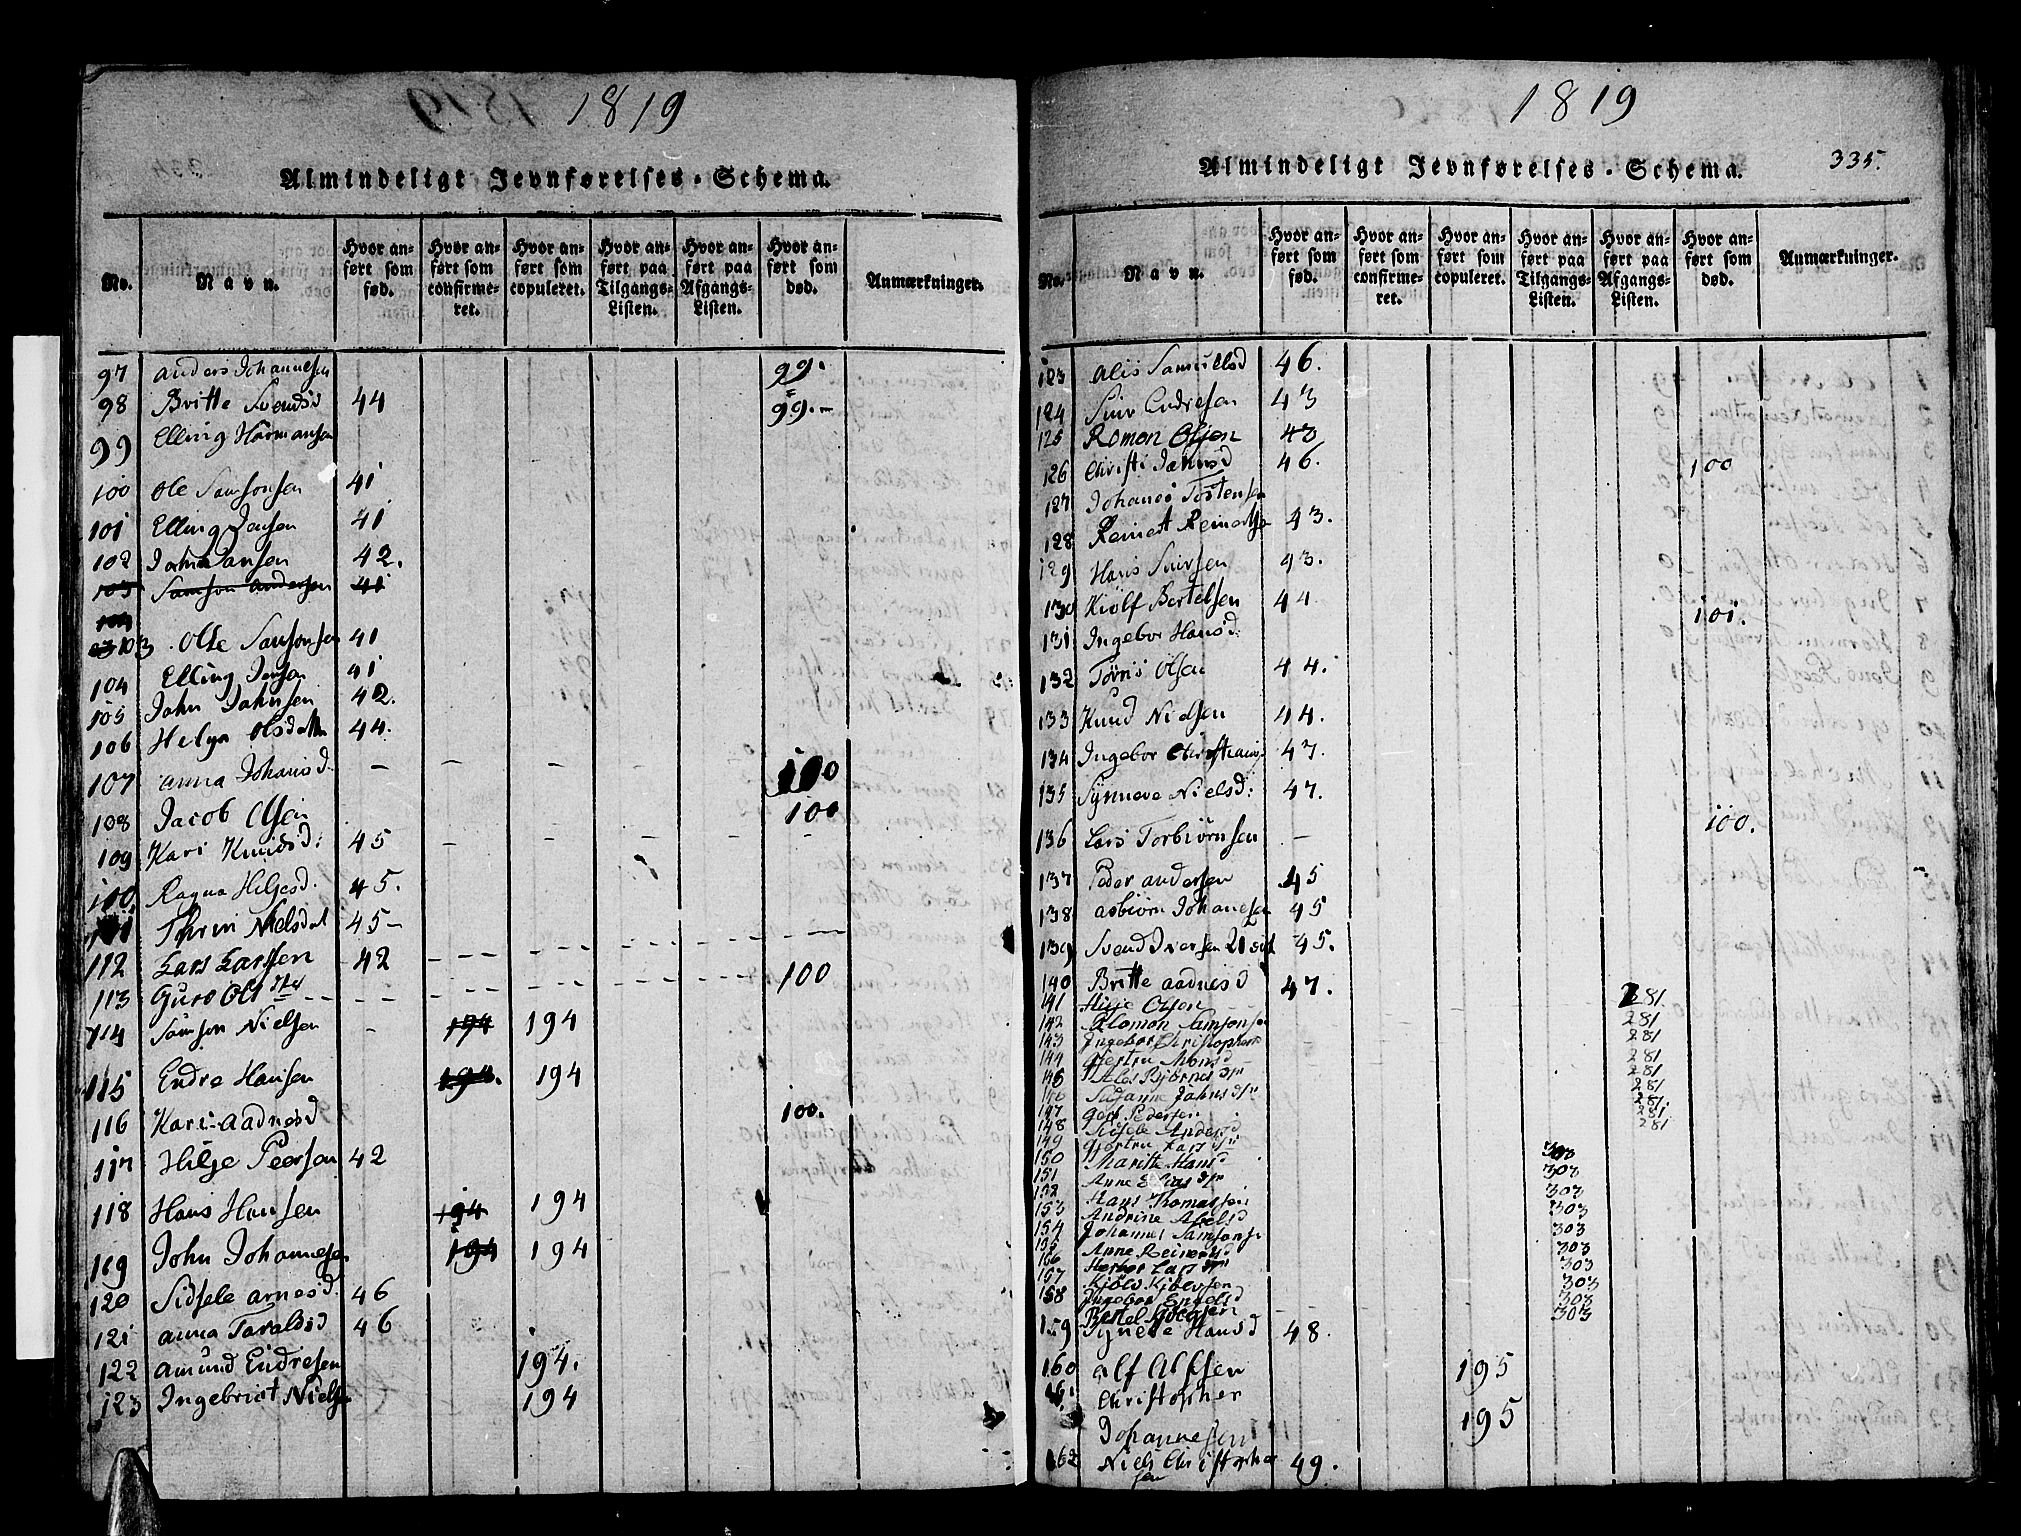 1819
Almindeligt Jevnførelses-Schema.
No. Navn. Hvor anført som fød. Hvor anført som confirmeret. Hvor anført som copuleret. Hvor anført paa Tilgangs-Listen. Hvor anført paa Afgangs-Listen. Hvor anført som død. Anmærkninger.
97 Anders Johannesen 99.
98 Britte Svendsd 44 99.-
99 Elling Hermansen
100 Ole Samsonsen 41
101 Elling Jensen 41
102 John Jansen 42.
103 Samson Andersen 41
104
103 Olle Samsonsen 41
104 Elling Jensen 41
105 John Johnsen 42.
106 Helga Olsdatter 44.
107 Anna Johansd. - - - 100
108 Jacob Olsen 100
109 Kari Knudsd: 45 - - - - -
110 Ragna Helgesd. 45.
111 Thrin Nielsdat 45-
112 Lars Larsen 42
113 Guro Ols 100
114 Samson Nielsen - 194 194
115 Endre Hansen 194. 194
116 Kari Aadnesd 100.
117 Hilje Peersen 42
118 Hans Hansen 194 194
119 John Johannesen 194 194
120 Sidsele Arnesd. 46
121 Anna Taraldsd 46
122 Amund Endresen 194.
123 Ingebrict Nielsen 194
1819
335.
Almindeligt Jevnførelses-Schema.
No. Navn. Hvor anført som fød. Hvor anført som confirmeret. Hvor anført som copuleret. Hvor anført paa Tilgangs-Listen. Hvor anført paa Afgangs-Listen. Hvor anført som død. Anmærkninger.
123 Alis Samuelsd 46.
124 Siur Endresen 43
125 Romon Olsen 43
126 Christi Jahnsd 46. 100
127 Johanes Tostensen
128 Reinert Reinertse 43.
129 Hans Siursen 43.
130 Kiølf Bertelsen 44 101.
131 Ingebor Hansd:
132 Tørris Olsen 44.
133 Knud Nielsen 44.
134 Ingebor Christians 47.
135 Synneve Nielsd: 47.
136 Lars Torbiørnsen - 100.
137 Peder Andersen 45
138 Asbiørn Johanesen 45
139 Svend Iversen 45.
140 Britte Aadnesd 47.
141 Hilje Olsen 281.
142 Salomon Samsonse 281
143 Ingebor Christophers 281
144 Giertru Monsd 281
145 Ales Biørnes 281
146 Susanne Jahns 281
147 Gert Pedersen 281.
148 Sidsele Andersd 281
149 Giertru Lars 281
150 Maritte Hansd 303
151 Anne Elias 303
152 Hans Thomassen 303
153 Andrine Abelsd 303
154 Johannes Samsonse 303
155 Anne Reinersd 303
156 Lars 303
157 303
158 Ingebor Engelsd 303
Bertel 303
159 Syneve Hansd 48.
160 Alf Alfsen 195
161 Christopher
Johannesen 195
162 Niels Christopher
sen 49.